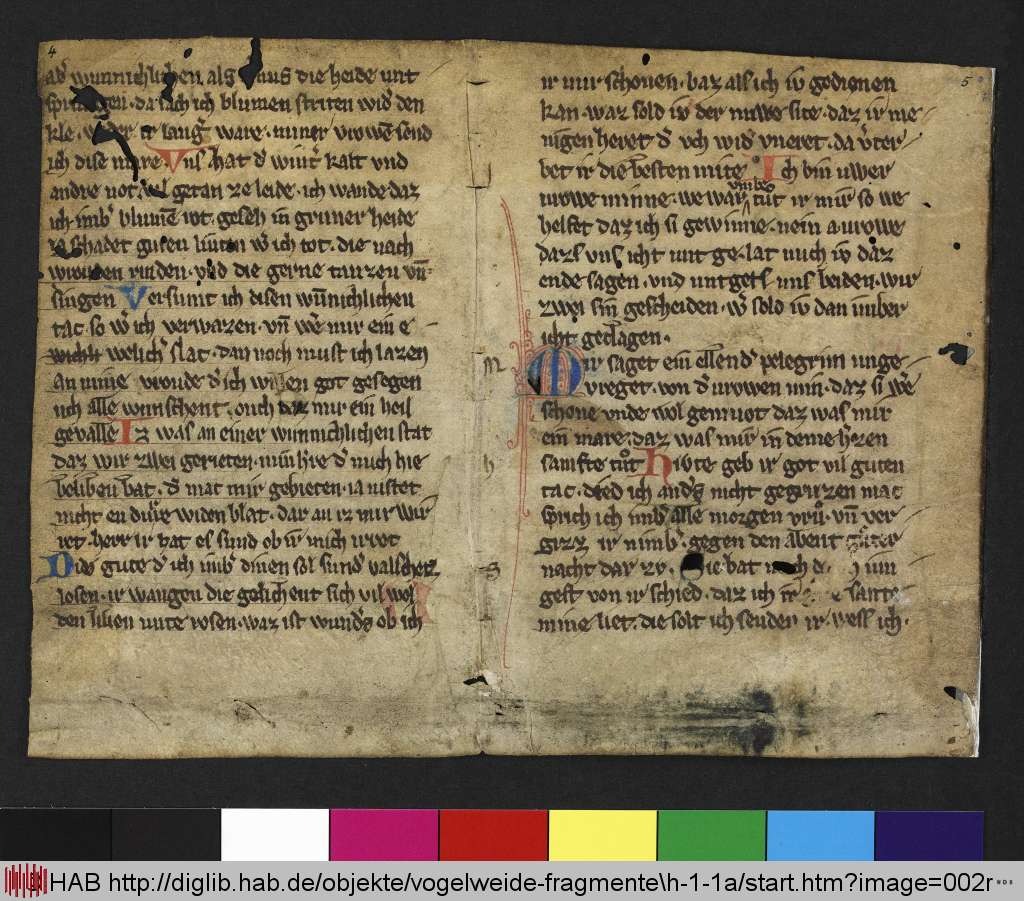 4
wunnichlichen als die heide unt
da sach ich blumen striten wid' den
kle. w d'er ir lang' ware. miner vrowē send
ich dise mare. Vns hat d' wint' kalt vnd
andre not vil getan ze leide. ich wande daz
ich imb' blumē rot. geseh in gruner heide
ia schadet guten liuten w' ich tot. die nach
wrouden rinden. vnd die gerne tanzen vn̄
singen Versumt ich disen wūnichlichen
tac. so w' ich verwazen. vn̄ we' mir ein e
wichli welich' slac. dan noch must ich lazen
an mine wroude d' ich willen got gesegen
uch alle wunschent. ouch daz mir ein heil
gevalle Iz was an einer wunnichlichen stat
daz wir zwei gerieten. min h're d' mich hie
beliben bat. d' mac mir gebieten. ia nistet
nicht en dūre widen blat. dar an iz mir wir
ret. herr ir hat es sund ob ir mich irret
Die gute d' ich imb' dinen sol sund' valschez
losen. ir wangen die gelichent sich vil wol
den lilien unte rosen. waz ist wund's ob ich
5
ir mir schonen. baz als ich iv gedienen
kan. waz sold iv der niwe site. daz ir me
nigen heret d' vch wid' vneret. da v'ter
bet ir die besten mite Ich bin uwer
umbe
urowe minne. we war tut ir mir so we
helfet daz ich si gewinne. nein a urowe
dazs vns icht unt ge. lat mich iv daz
ende sagen. vnd untgets uns beiden. wir
zwei sin gescheiden. w' sold iv dan imber
icht geclagen.
M
Mir saget ein ellend' pelegrin unge
vreget. von d' urowen min. daz si we'
schone vnde wol gemuot daz was mir
ein mare. daz was mir in deme h'zen
h
samfte tuot Hivte geb ir got vil guten
tac. d ed ich and's nicht gegruzen mac
sprich ich imb' alle morgen vru. vn̄ ver
gizz ir nimb'. gegen den abent guter
S
nacht dar zv. Sie bat mich d im
gest von ir schied. daz ich ir sante
mine liet. die solt ich senden ir. wess ich.
HAB http://diglib.hab.de/objekte/vogelweide-fragmente\h-1-1a/start.htm?image=002r